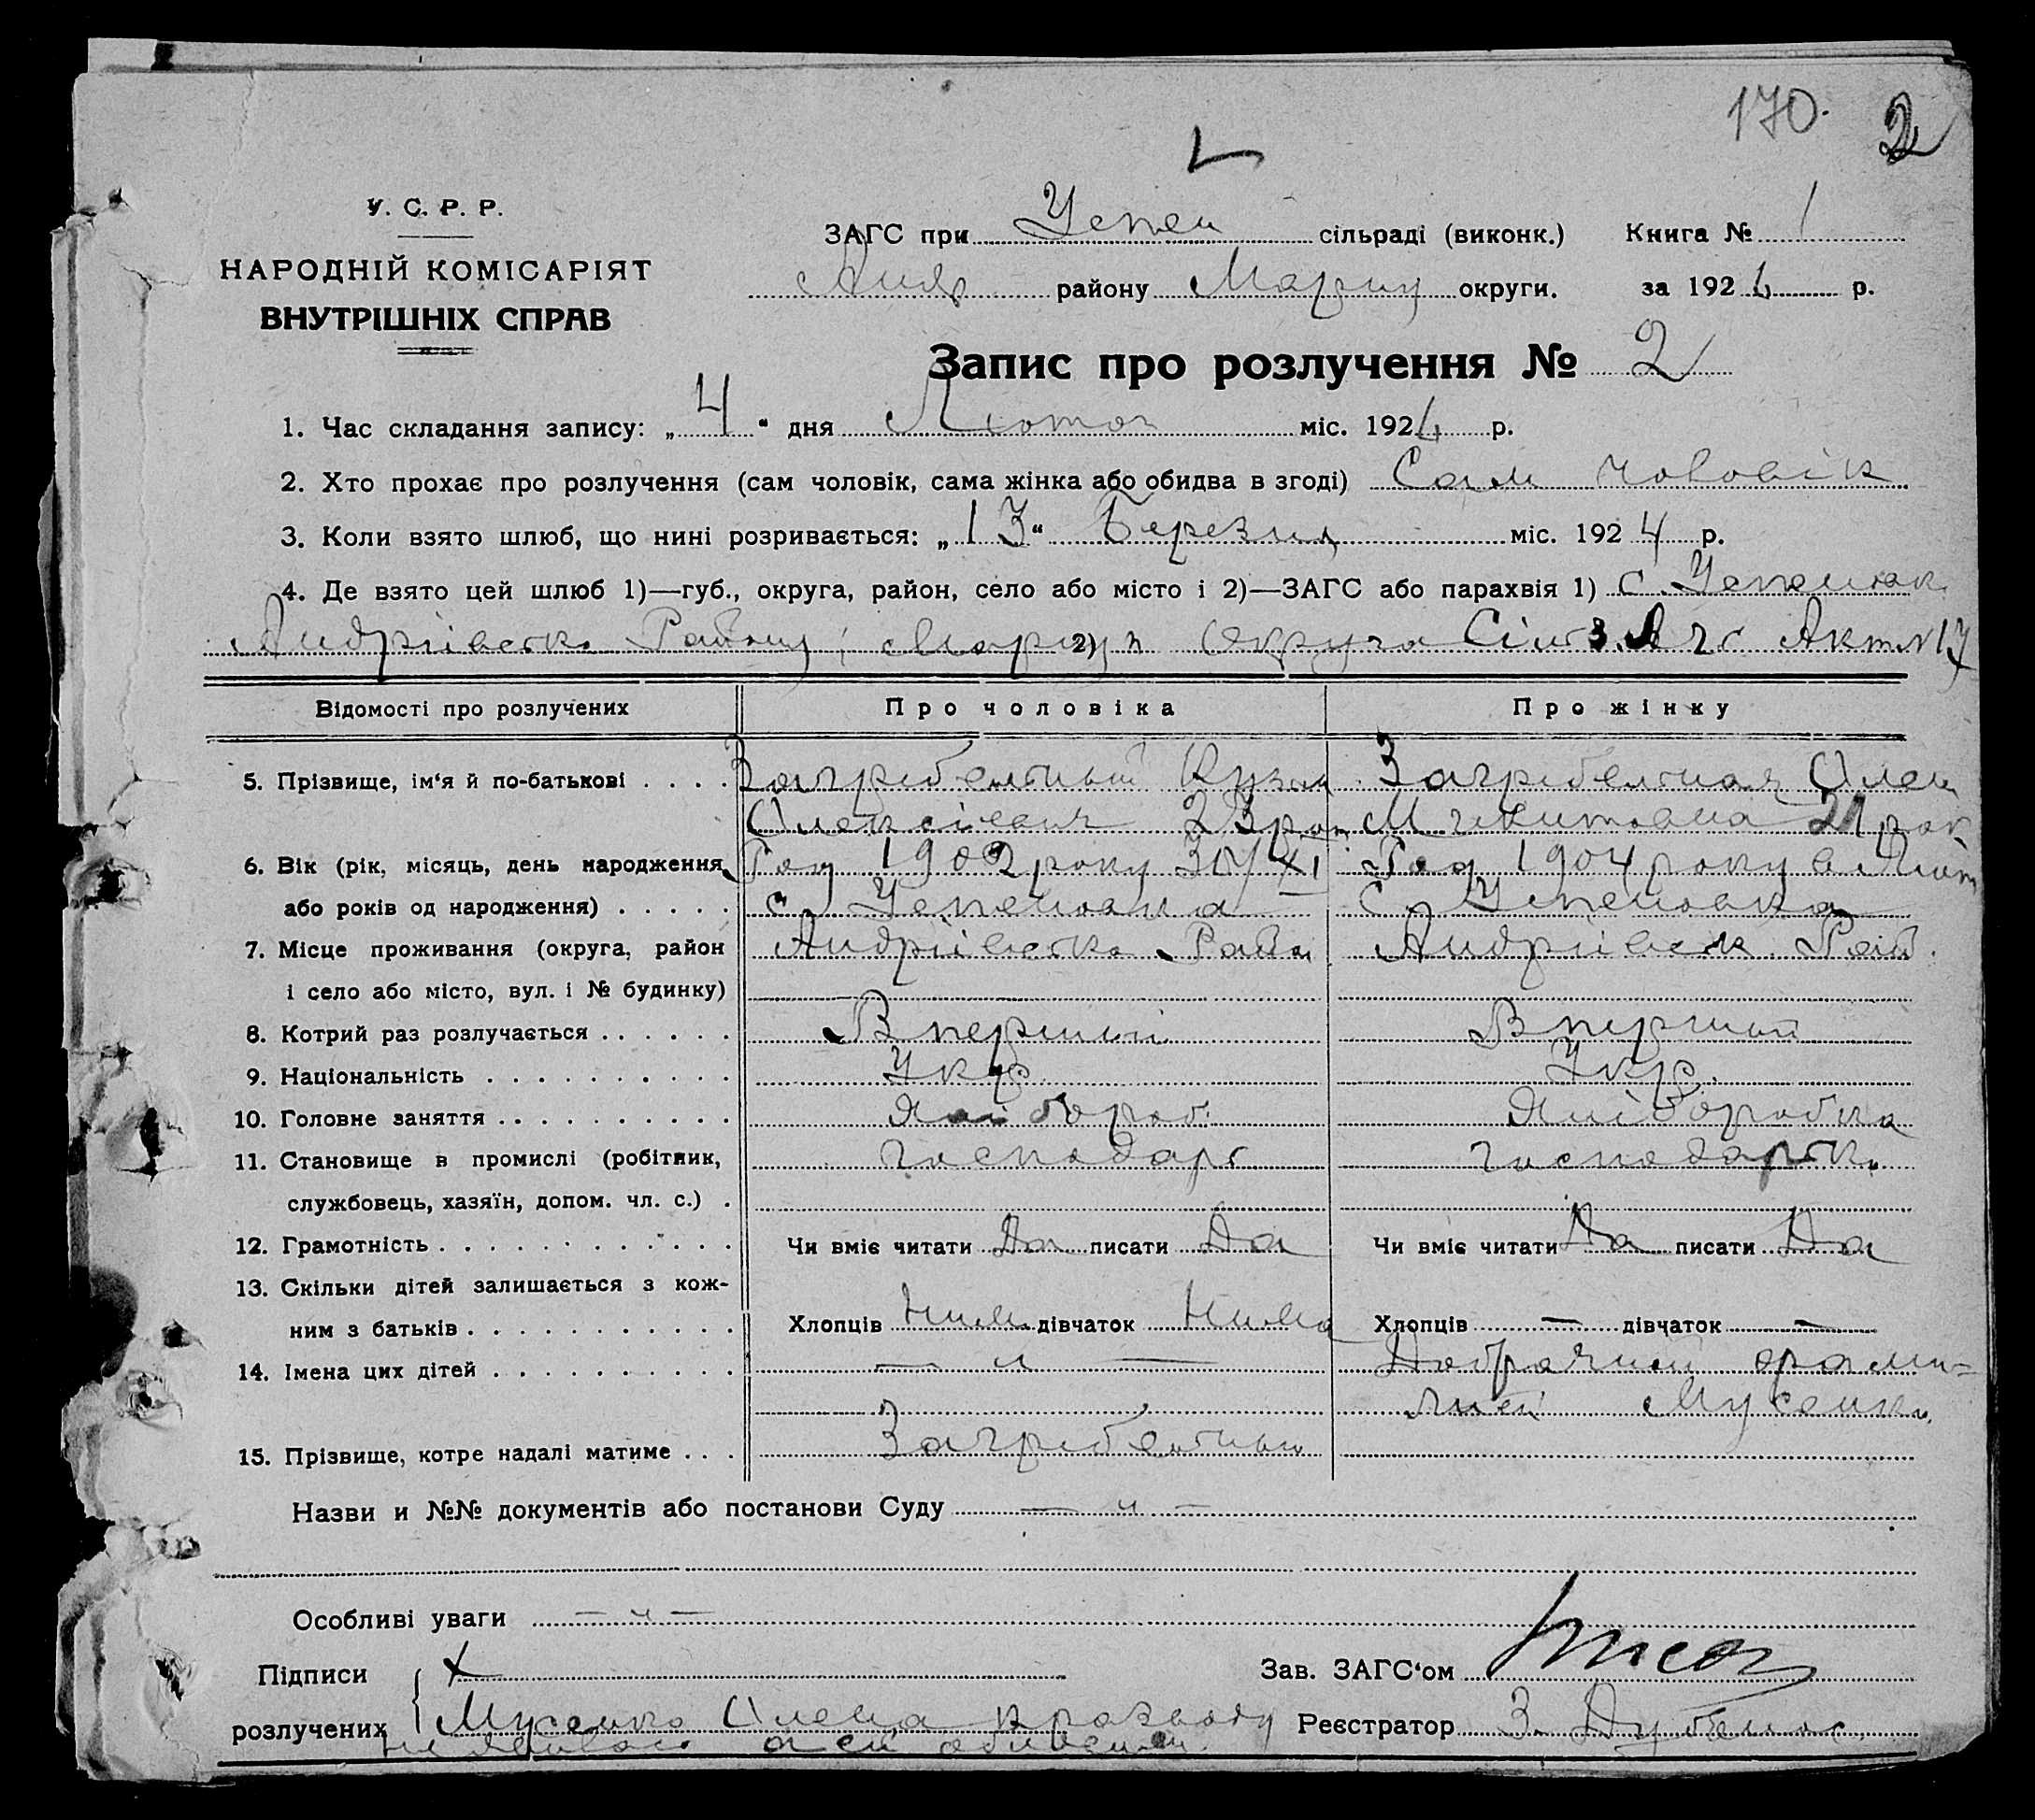 170. 2
У. С. Р. Р.
НАРОДНІЙ КОМІСАРІЯТ
ВНУТРІШНІХ СПРАВ
ЗАГС при Успен сільраді (виконк.) Книга № 1
Андр району Маріуп округи. за 1926 р.
Запис про розлучення № 2
1. Час складання запису: „4“ дня Лютого міс. 1926 р.
2. Хто прохає про розлучення (сам чоловік, сама жінка або обидва в згоді) Сам чоловік
3. Коли взято шлюб, що нині розривається: „13“ Березня міс. 1924 р.
4. Де взято цей шлюб 1)—губ., округа, район, село або місто і 2)—ЗАГС або парахвія 1) с. Успеновк
Андріівсько Району, 2) округа Акт № 17
Відомості про розлучених Про чоловіка Про жінку
5. Прізвище, ім‘я й по-батькові . . . . Загрібельный Кузьм Загрібельная Олен
Олексієвич 23 рок Микитовна 21 рок
6. Вік (рік, місяць, день народження Род 1902 року 30/XI Род 1904 року
або років од народження) . . . . . с. Успеновка с. Успеновка
7. Місце проживання (округа, район Андріівсько Райо Андріівськ Рай.
і село або місто, вул. і № будинку)
8. Котрий раз розлучається . . . . . . Вперший Вперший
9. Національність . . . . . . . . . . Укр. Укр.
10. Головне заняття . . . . . . . . . . Хлібороб. Хліборобка
11. Становище в промислі (робітник, господарь господарьк
службовець, хазяїн, допом. чл. с.) .
12. Грамотність . . . . . . . . . . . . Чи вміє читати Да писати Да Чи вміє читати Да писати Да
13. Скільки дітей залишається з кож-
ним з батьків . . . . . . . . . . . Хлопців Нима дівчаток Нима Хлопців — дівчаток —
14. Імена цих дітей . . . . . . . . . . — и — Добрачний фами-
лией Мусенко
15. Прізвище, котре надалі матиме . . . Загрібельный
Назви и №№ документів або постанови Суду — и —
Особливі уваги — и —
Підписи + Зав. ЗАГС‘ом
розлучених Мусенко Олена к розводу Реєстратор З. Дубенос